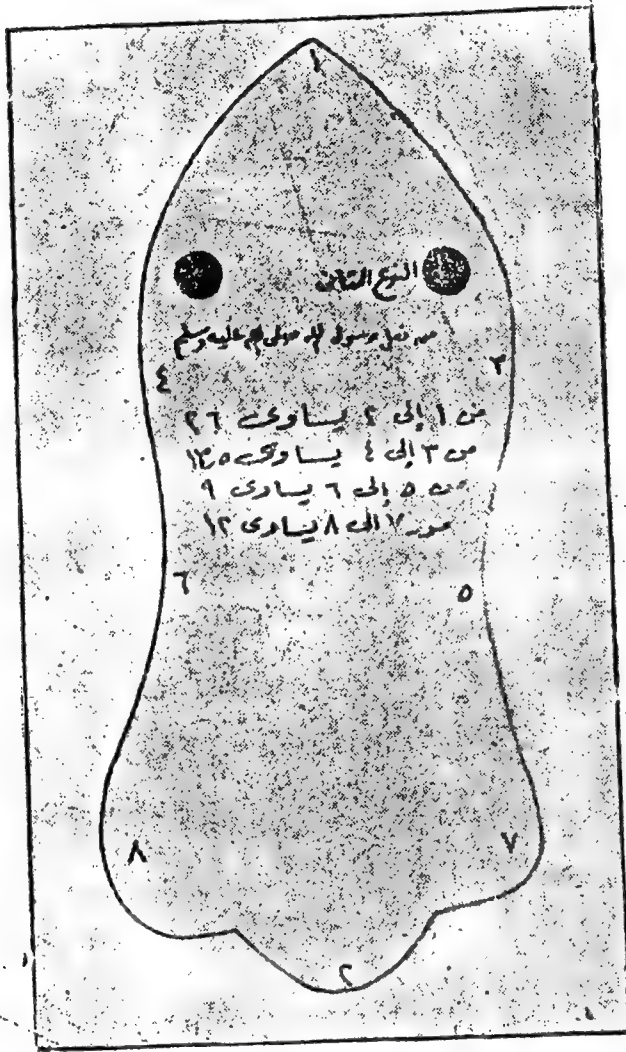 ١
النوع الثاني
من نعل رسول الله صلى الله عليه وسلم
٤ ٣
من ١ إلى ٢ يساوى ٢٦
من ٣ إلى ٤ يساوى
من ٥ إلى ٦ يساوى ٩
من ٧ الى ٨ يساوى ١٢
٦ ٥
٨ ٧
٢